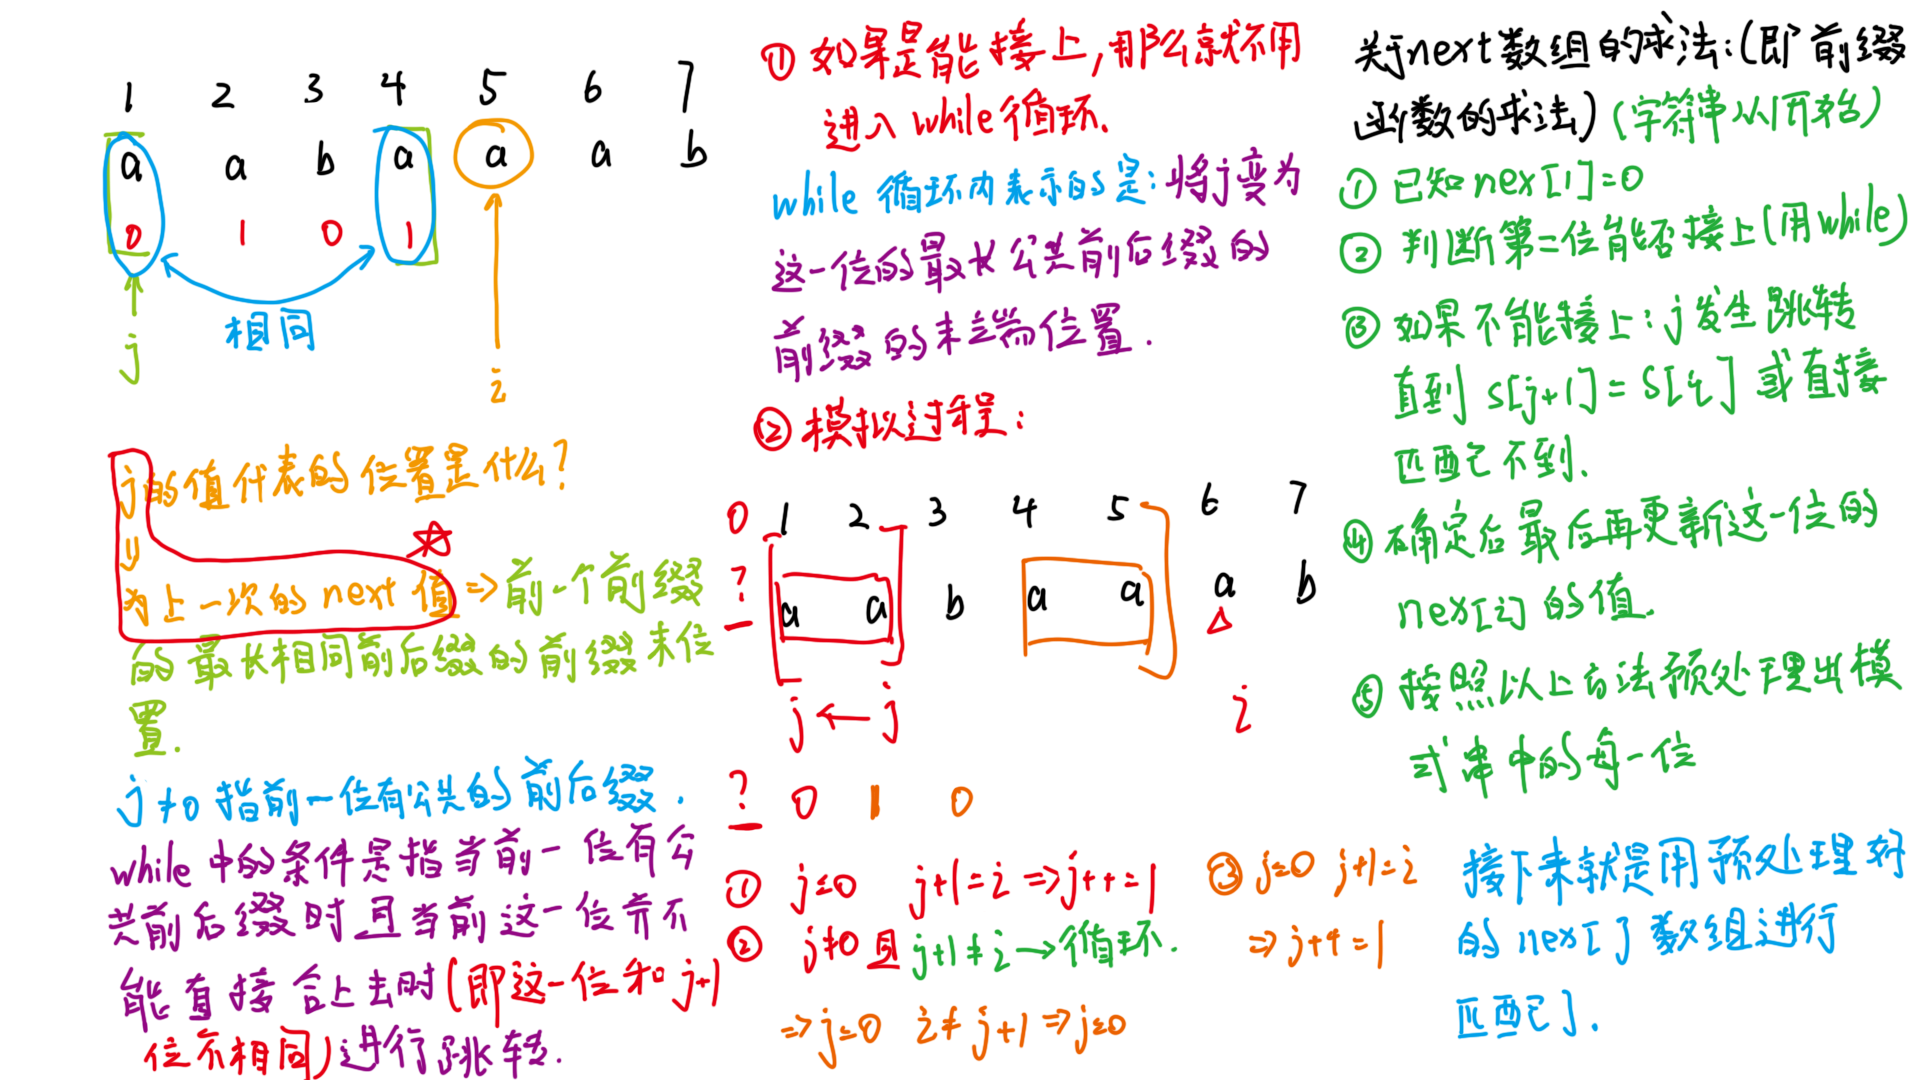 1 2 3 4 5 6 7
a a b a a a b
0 1 0 1
相同
j
i
j的值代表的位置是什么?
为上一次的next值⇒前一个前缀
的最长相同前后缀的前缀末位
置.
j≠0指前一位有公共的前后缀.
while中的条件是指当前一位有公
共前后缀时且当前这一位并不
能直接合上去时(即这一位和j+1
位不相同)进行跳转.
① 如果是能接上,那么就不用
进入while循环.
while循环内表示的是:将j变为
这一位的最长公共前后缀的
前缀的末端位置.
② 模拟过程:
0 1 2 3 4 5 6 7
? a a b a a a b
j←j
i
? 0 1 0
① j=0 j+1=i⇒j++=1
② j≠0且j+1≠i→循环.
⇒j=0 i≠j+1⇒j=0
③ j=0 j+1=i
⇒j++=1
关于next数组的求法:(即前缀
函数的求法)(字符串从1开始)
① 已知nex[1]=0
② 判断第二位能否接上(用while)
③ 如果不能接上:j发生跳转
直到s[j+1]=s[i]或直接
匹配不到.
④ 确定后最后再更新这一位的
nex[i]的值.
⑤ 按照以上方法预处理出模
式串中的每一位
接下来就是用预处理好
的nex[]数组进行
匹配了.